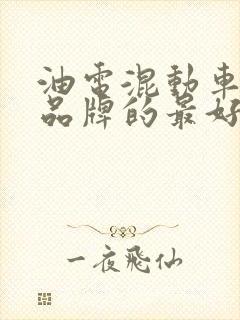 油電混動車
品牌的最好
一夜飛仙